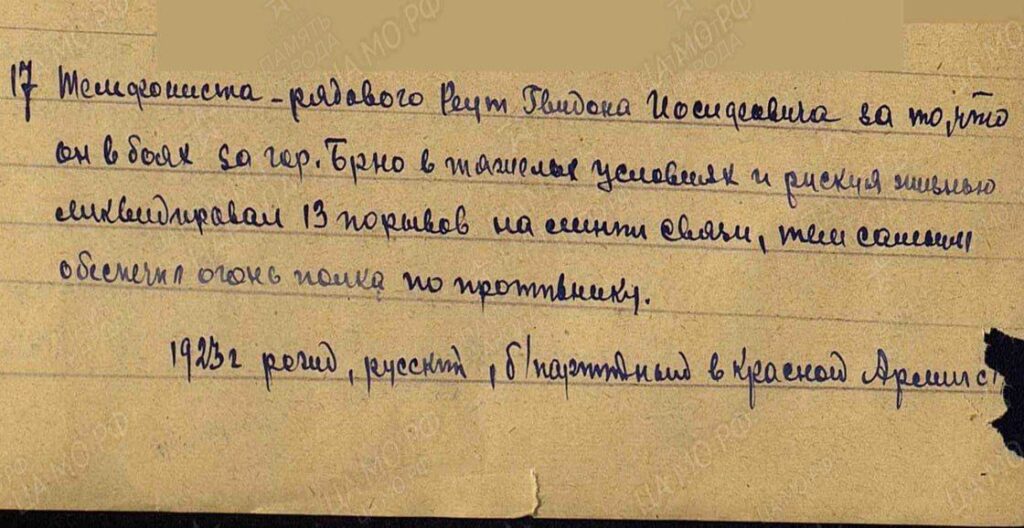 17 Телефониста - рядового Реут Гвидона Иосифовича за то, что
он в боях за гор. Брно в тяжелых условиях и рискуя жизнью
ликвидировал 13 порывов на линии связи, тем самым
обеспечил огонь полка по противнику.
1923 г рожд, русский, б/партийный в Красной Армии с